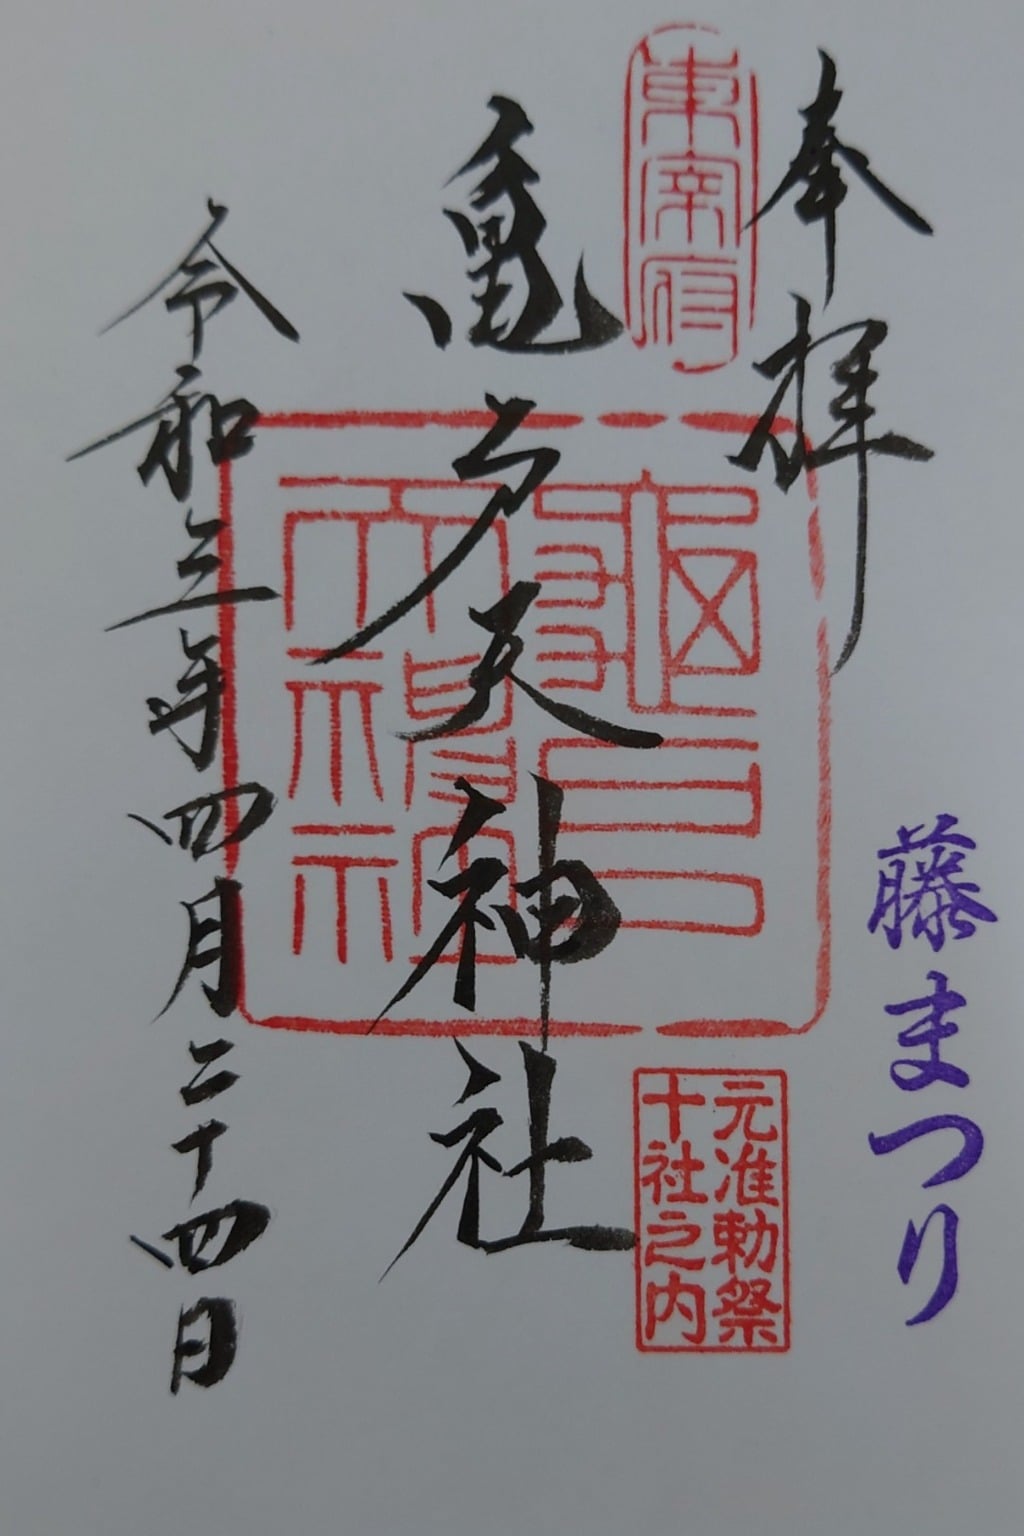 奉拝
藤まつり
東宰府
元准勅祭
十社之内
亀戸天神社
令和三年四月二十四日